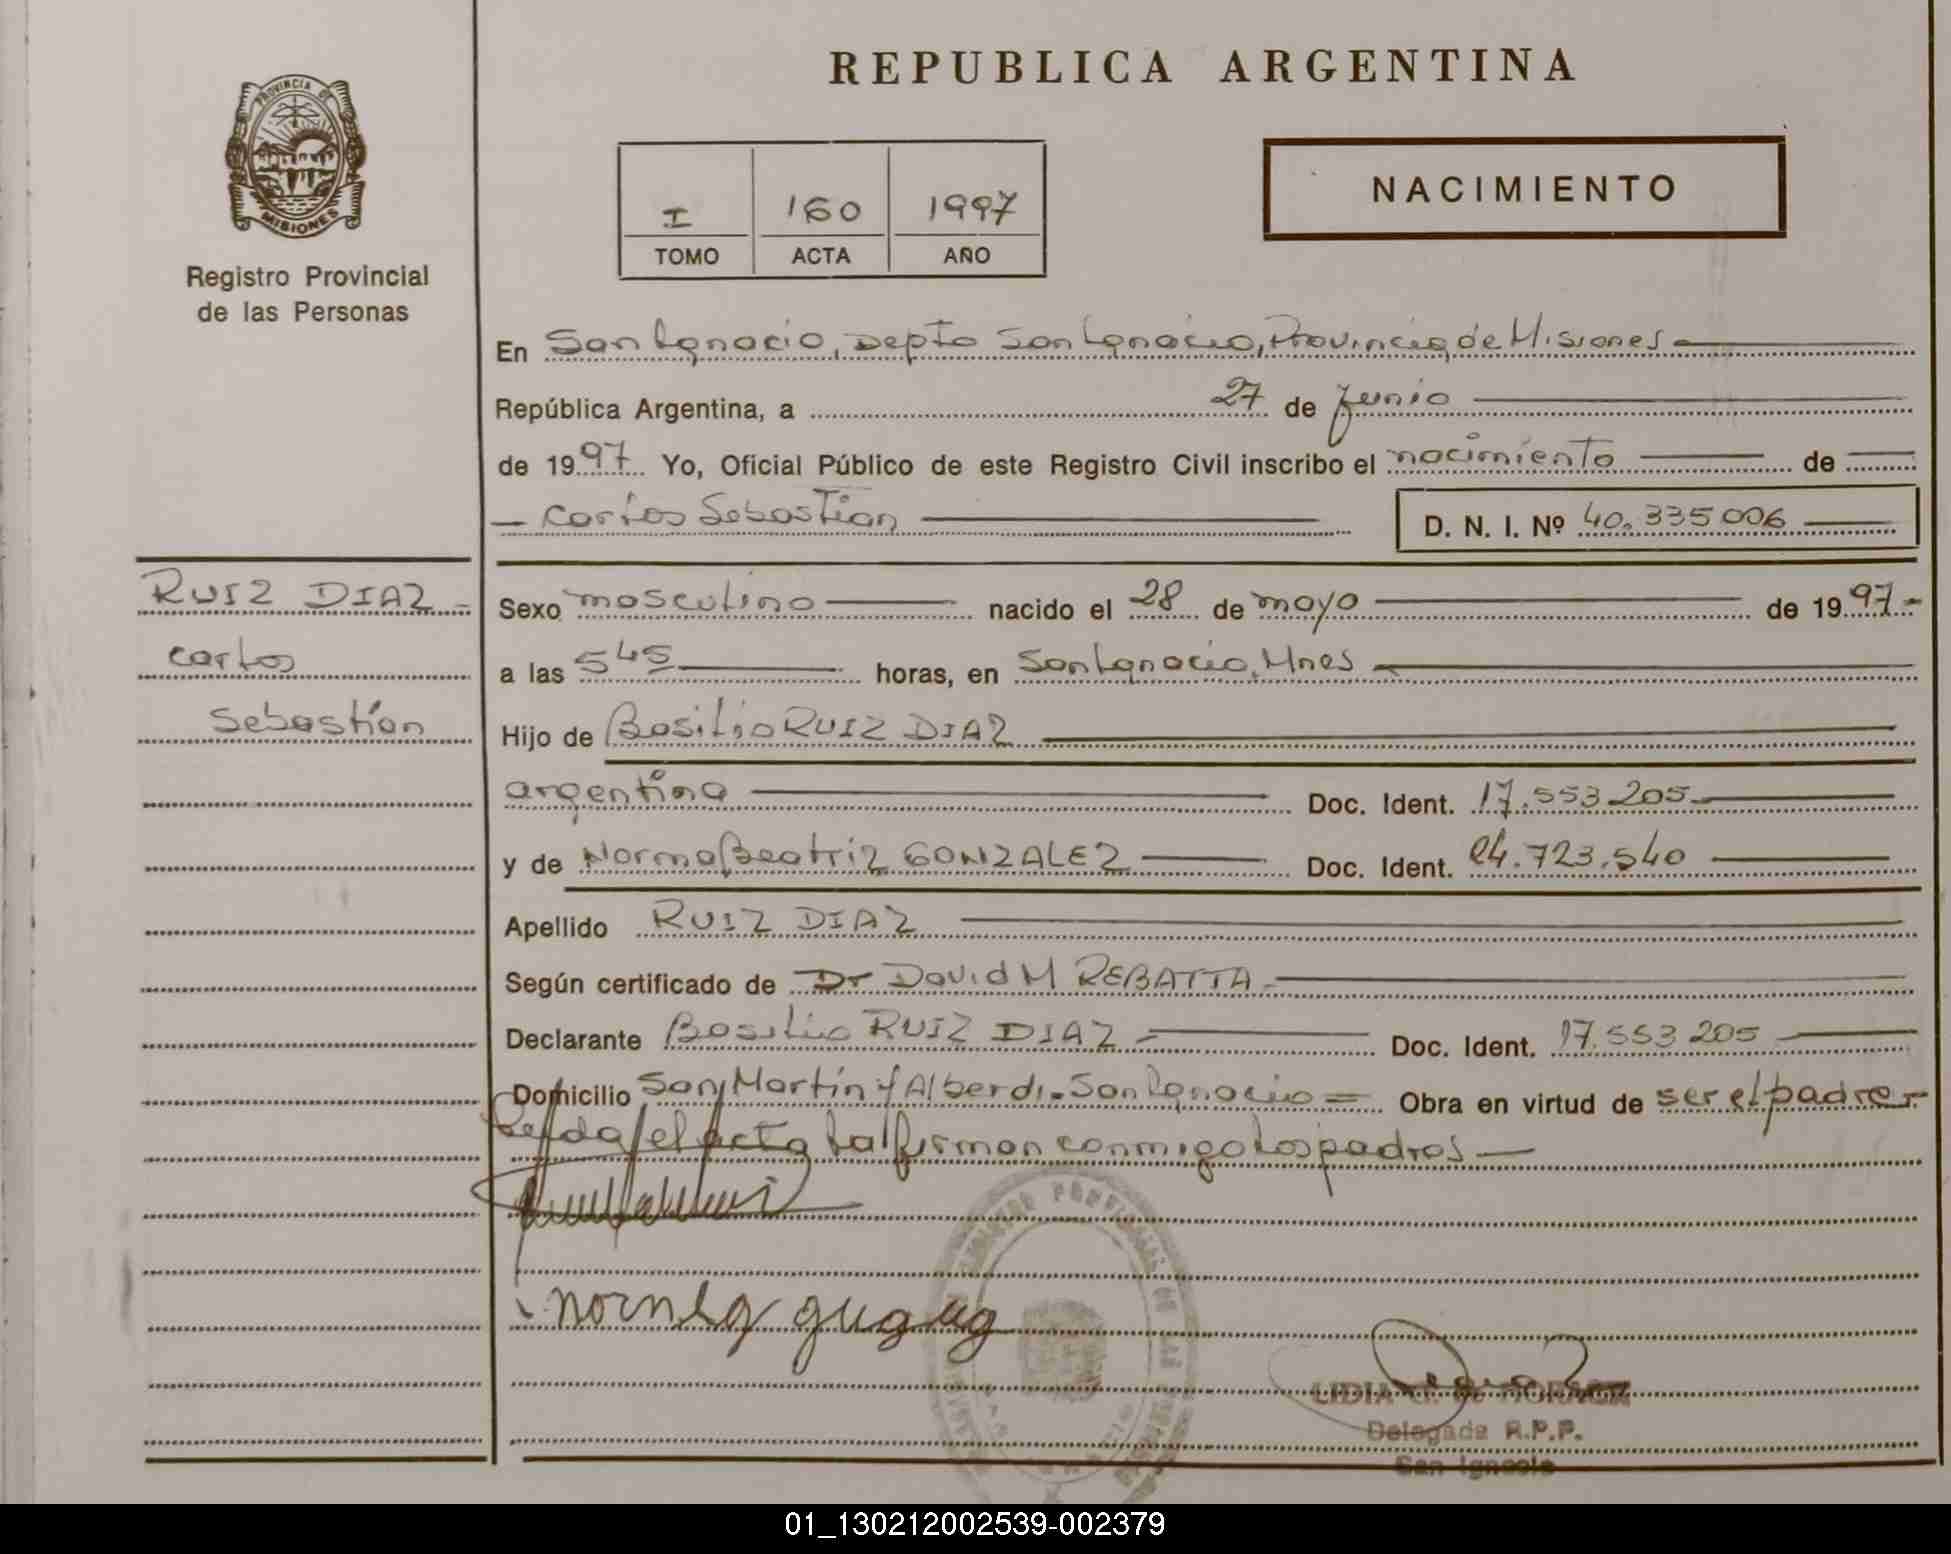 REPUBLICA ARGENTINA
PROVINCIA DE
MISIONES
Registro Provincial
de las Personas
I 160 1997
TOMO ACTA AÑO
NACIMIENTO
En San Ignacio, Depto San Ignacio, Provincia de Misiones
República Argentina, a 27 de Junio
de 1997 Yo, Oficial Público de este Registro Civil inscribo el nacimiento de
Carlos Sebastian D. N. I. Nº 40.335006
RUIZ DIAZ
Carlos
Sebastian
Sexo masculino nacido el 28 de mayo de 1997
a las 545 horas, en San Ignacio, Mnes
Hijo de Basilio RUIZ DIAZ
argentina Doc. Ident. 17.553.205
y de Norma Beatriz GONZALEZ Doc. Ident. 24.723.540
Apellido RUIZ DIAZ
Según certificado de Dr David M REBATTA
Declarante Basilio RUIZ DIAZ Doc. Ident. 17.553 205
Domicilio San Martín y Alberdi - San Ignacio = Obra en virtud de ser el padre
Leida el acta la firman conmigo los padres
Delegada R.P.P.
San Ignacio
01_130212002539-002379